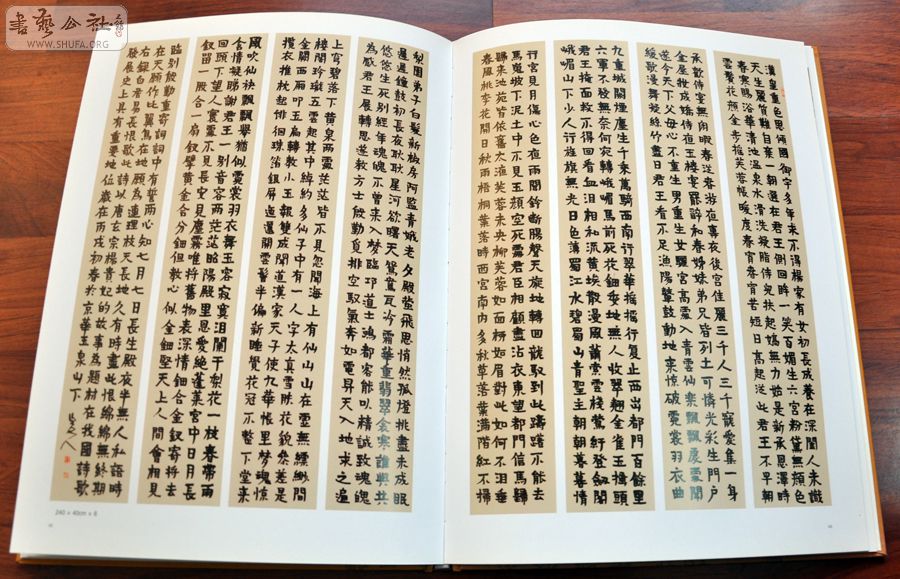 書藝公社
WWW.SHUFA.ORG
漢皇重色思傾國御宇多年求不得楊家有女初長成養在深閨人未識
天生麗質難自棄一朝選在君王側回眸一笑百媚生六宮粉黛無顏色
春寒賜浴華清池溫泉水滑洗凝脂侍兒扶起嬌無力始是新承恩澤時
雲鬢花顏金步搖芙蓉帳暖度春宵春宵苦短日高起從此君王不早朝
承歡侍宴無閑暇春從春游夜專夜後宮佳麗三千人三千寵愛集一身
金屋妝成嬌侍夜玉樓宴罷醉和春姊妹弟兄皆列土可憐光彩生門戶
遂令天下父母心不重生男重生女驪宮高處入青雲仙樂風飄處處聞
緩歌慢舞凝絲竹盡日君王看不足漁陽鼙鼓動地來驚破霓裳羽衣曲
九重城闕煙塵生千乘萬騎西南行翠華搖搖行復止西出都門百餘里
六軍不發無奈何宛轉蛾眉馬前死花鈿委地無人收翠翹金雀玉搔頭
君王掩面救不得回看血淚相和流黃埃散漫風蕭索雲棧縈紆登劍閣
峨嵋山下少人行旌旗無光日色薄蜀江水碧蜀山青聖主朝朝暮暮情
行宮見月傷心色夜雨聞鈴斷腸聲天旋地轉回龍馭到此躊躇不能去
馬嵬坡下泥土中不見玉顏空死處君臣相顧盡沾衣東望都門信馬歸
歸來池苑皆依舊太液芙蓉未央柳芙蓉如面柳如眉對此如何不淚垂
春風桃李花開日秋雨梧桐葉落時西宮南內多秋草落葉滿階紅不掃
梨園弟子白髮新椒房阿監青娥老夕殿螢飛思悄然孤燈挑盡未成眠
遲遲鐘鼓初長夜耿耿星河欲曙天鴛鴦瓦冷霜華重翡翠衾寒誰與共
悠悠生死別經年魂魄不曾來入夢臨邛道士鴻都客能以精誠致魂魄
為感君王展轉思遂教方士殷勤覓排空馭氣奔如電昇天入地求之遍
上窮碧落下黃泉兩處茫茫皆不見忽聞海上有仙山山在虛無縹緲間
樓閣玲瓏五雲起其中綽約多仙子中有一人字太真雪膚花貌參差是
金闕西廂叩玉扃轉教小玉報雙成聞道漢家天子使九華帳里夢魂驚
攬衣推枕起徘徊珠箔銀屏迤邐開雲鬢半偏新睡覺花冠不整下堂來
風吹仙袂飄飄舉猶似霓裳羽衣舞玉容寂寞淚闌干梨花一枝春帶雨
含情凝睇謝君王一別音容兩渺茫昭陽殿里恩愛絕蓬萊宮中日月長
回頭下望人寰處不見長安見塵霧唯將舊物表深情鈿合金釵寄將去
釵留一股合一扇釵擘黃金合分鈿但教心似金鈿堅天上人間會相見
臨別殷勤重寄詞詞中有誓兩心知七月七日長生殿夜半無人私語時
在天願作比翼鳥在地願為連理枝天長地久有時盡此恨綿綿無絕期
右錄白居易長恨歌此詩以唐玄宗楊貴妃的故事為題材在我國詩歌
發展史上具有重要地位歲在丙戌初春於京華玉泉山下
240 × 40cm × 8